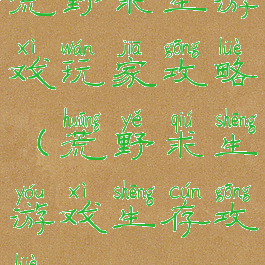 荒野求生游
xì wán jiā gōng lüè
戏玩家攻略
huāng yě qiú shēng
（荒野求生
yóu xì shēng cún gōng
游戏生存攻
lüè